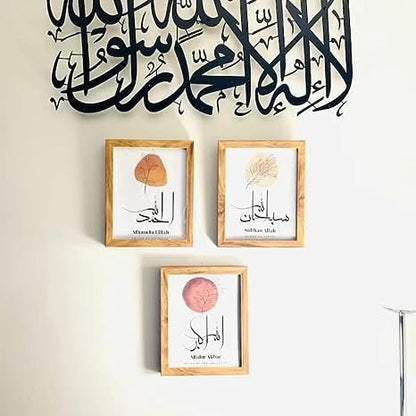 لا إله إلا الله محمد رسول الله
الحمد لله
Alhamdu Lillah
سبحان الله
Subhan Allah
الله اكبر
Allahu Akbar